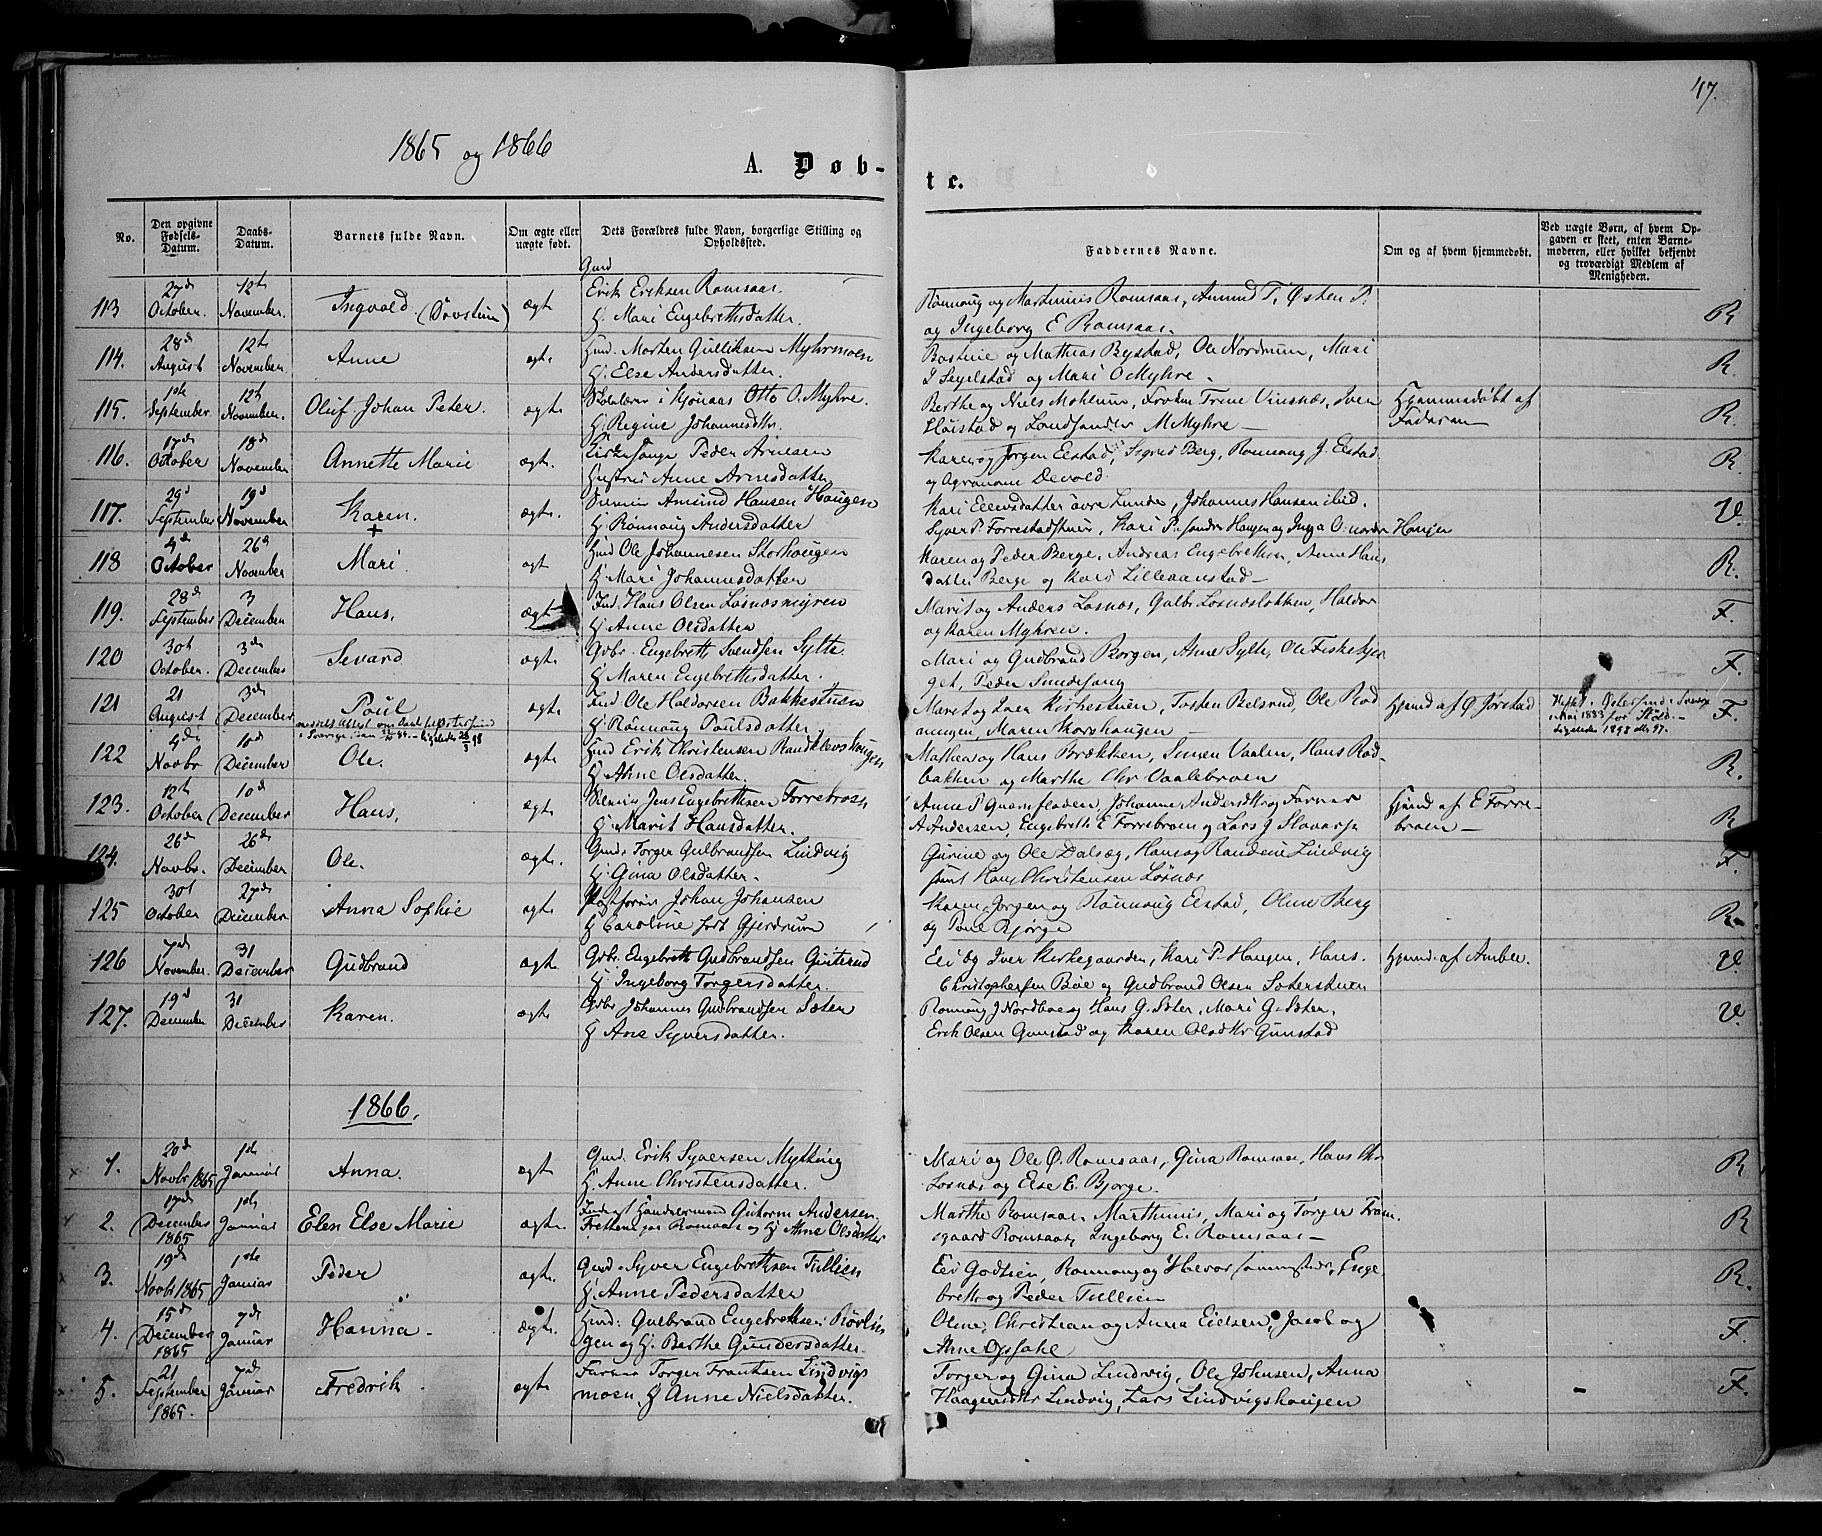 47.
1865 og 1866
A. Døb-
te.
No.
Den opgivne Fødsels-Datum.
Daabs-Datum.
Barnets fulde Navn.
Om ægte eller uægte født.
Dets Forældres fulde Navn, borgerlige Stilling og Opholdssted.
Faddernes Navne.
Om og af hvem hjemmedøbt.
Ved uægte Børn, af hvem Opgaven er skeet, enten Barnemoderen, eller hvilket bekjendt og troværdigt Medlem af Menigheden.
113 27de October. 12te November. Ingvald (Øvstuen) ægt Gmd Erik Eriksen Romsaas.
H. Mari Engebrethsdatter.
Rønnoug og Marthinus Romsaas, Amund T. Østen P.
og Ingeborg E Romsaas. R
114. 28de August 12te November Anne ægt Hmd. Morten Gulliksen Myhrmoen
H. Else Andersdatter.
og Mathias Bystad, Ole Nordrum, Mari
Segelstad og Mari O Myhre. R.
115. 1ste September. 12te November. Oluf Johan Peter. ægt. Skolelærer i Kjønaas Otto O. Myhre.
H. Regine Johannesdtr.
Berthe og Niels Mohlum, Frøken Trine Vinsnæs, Iver
og M Myhre
Hjemmedøbt af
Faderen R.
116. 17de October 18de November Annette Marie ægt. Kirkesanger Peder Arnesen
Hustru Anne Arnesdatter
Karen og Jørgen Elstad, Sigrid Berg, Rønnoug J. Elstad
og Agronom Devold. R.
117. 29de September 19de November Karen. ægt. Amund Hansen Haugen
H. Rønnoug Andersdatter
Kari øvre Lunde, Johannes Hansen ibid.
Syver P. Kari P. søndre Haugen og Inga O. nordre Haugen V.
118 4de October 26de November Mari. ægt Hmd Ole Johannesen Storhaugen
H. Mari Johannesdatter
Karen og Peder Berge, Andreas Engebrethsen, Anne Hans
datter Berge og Kari Lilleaanstad R.
119. 28de September 3 December Hans, ægt. Ind. Hans Olsen Losnæsmyren
H. Anne Olsdatter
Marit og Anders Losnæs, Gulb. Losnæsløkken, Haldor
og Karen Myhren. F.
120 30te October. 3de December Sevard ægt. Gbr. Engebreth Svendsen Sylte.
H. Maren Engebrethsdatter.
Mari og Gudbrand Borgen, Anne Sylte, Ole
Peder F.
121 21 August 3de December Poul ægt. Ind Ole Haldorsen Bakkestuen
H. Rønnoug Poulsdatter.
Marit og Lars Kirkestuen, Torsten Belsrud, Ole
Maren
Hjemd af Ø Jørstad
Østersund Sverige
Mai 1883 for
1898 F.
122 4de Novbr 10de December Ole. ægt. Hmd Erik Christensen Randklevshaugen
H. Anne Olsdatter.
Mathea og Hans Brækken, Simen Vaalen, Hans Rød-
bakken og Marthe Chr Vaalebroen R.
123. 12te October 10de December Hans, ægt Jens Engebrethsen Forrebroen
H. Marit Hansdatter.
Anne P Johanne og
A Andersen, Engebreth E Forrebroen og Lars J
Hjemd af E Forre-
broen R
124. 26de Novbr. 26de December Ole. ægt. Gmd. Torger Gulbrandsen Lindvig
H. Gina Olsdatter.
Gurine og Ole Dalsæg, Hans og Randine Lindvig
samt Hans Christensen Losnæs F.
125 30te October 27de December Anna Sophie ægt Johan Johansen
H Caroline født Gjerdrum
Karen, Jørgen og Rønnoug Elstad, Oline Berg
og Bjørge R.
126 7de November. 31 December Gudbrand ægt. Gbr. Engebreth Gudbrandsen
H. Ingeborg Torgersdatter.
og Iver Kirkegaarden, Kari P. Haugen, Hans
Christophersen Bøe og Gudbrand Olsen
Hjemd. af V.
127. 19de December 31 December Karen. ægt Gbr Johannes Gudbrandsen Sæter
H Ane Syversdatter.
Rønnoug J Nordbøe og Hans G. Sæter, Mari G. Sæter,
Erik Olsen Gunstad og Karen Olsdtr Gunstad V.
1866.
1. 20de Novbr 1865 1ste Januar Anna. ægt Gmd. Erik Syversen Mytting
H. Anne Christensdatter.
Mari og Ole Ø. Romsaas, Gina Romsaas, Hans Chr
Losnæs og Else E. Bjørge. R
2. 17de December 1865 1ste Januar Elen Else Marie ægt. Guttorm Andersen
Romsaas og H. Ane Olsdatter
Marthe Romsaas, Marthinus, Mari og Torger
Romsaas, Ingeborg E. Romsaas R
3. 19de Novbr 1865 1ste Januar Peder ægt. Gmd Syver Engebrethsen Tullien
H. Anne Pedersdatter
Rønnoug og Enge
breth og Peder Tullien R.
4. 15de December 1865 7de Januar Hanna. ægt. Hmd: Gulbrand Engebrethsen
og H. Berthe Gundersdatter.
Oline, Christian og Anna Eielsen, Jacob og
Anne Opsahl F.
5. 21 September 1865. 7de Januar Fredrik ægt Torger Frantsen Lindvigs
moen, H Anne Nielsdatter.
Torger og Gina Lindvig, Ole Johnsen, Anna
Lindvig, Lars Lindvigshaugen F.